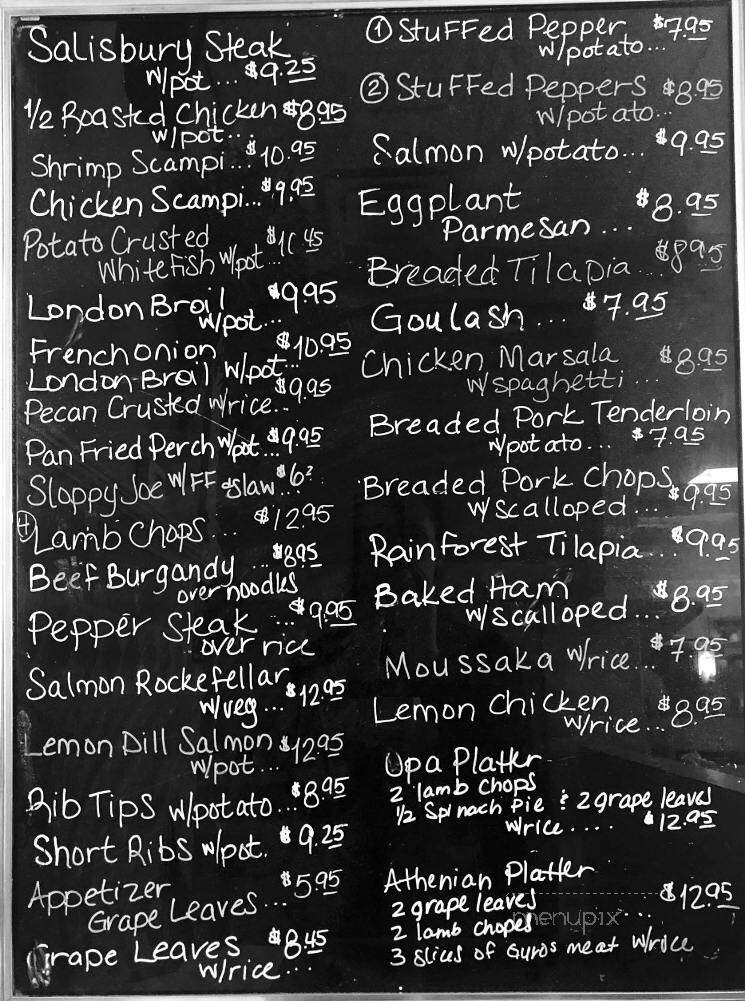 Salisbury Steak
w/pot... $9.25
1/2 Roasted Chicken $8.95
w/pot...
Shrimp Scampi... $10.95
Chicken Scampi... $9.95
Potato Crusted
Whitefish w/pot...
London Broil $9.95
w/pot...
French onion $10.95
London Broil w/pot...
Pecan Crusted w/rice... $9.95
Pan Fried Perch w/pot... $9.95
Sloppy Joe w/FF & slaw
④ Lamb Chops... $12.95
Beef Burgandy... $8.95
over noodles
Pepper Steak... $9.95
over rice
Salmon Rockefellar
w/veg... $12.95
Lemon Dill Salmon $12.95
w/pot...
Rib Tips w/potato... $8.95
Short Ribs w/pot. $9.25
Appetizer $5.95
Grape Leaves...
Grape Leaves $8.45
w/rice...
① Stuffed Pepper $7.95
w/potato...
② Stuffed Peppers $8.95
w/potato...
Salmon w/potato... $9.95
Eggplant $8.95
Parmesan...
Breaded Tilapia... $8.95
Goulash... $7.95
Chicken Marsala $8.95
w/spaghetti...
Breaded Pork Tenderloin
w/potato... $7.95
Breaded Pork Chops
w/scalloped... $9.95
Rainforest Tilapia... $9.95
Baked Ham $8.95
w/scalloped...
Moussaka w/rice... $7.95
Lemon Chicken $8.95
w/rice...
Opa Platter
2 lamb chops
1/2 Spinach Pie & 2 grape leaves
w/rice.... $12.95
Athenian Platter
2 grape leaves $12.95
2 lamb chopes ...
3 slices of Gyros meat w/rice
menupix